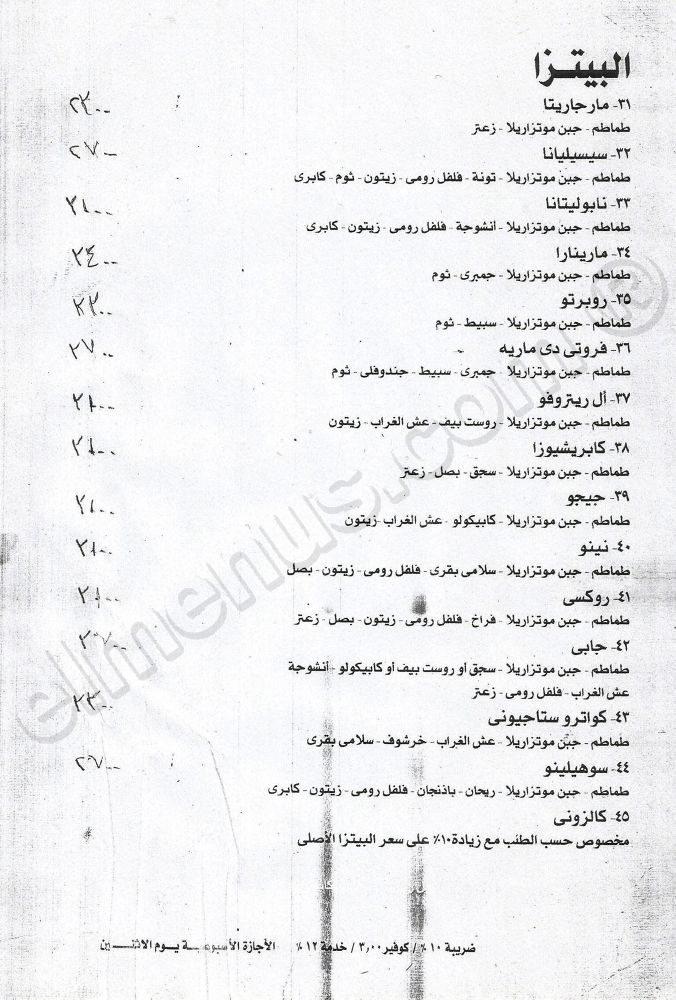 البيتزا
٣١- مارجاريتا
طماطم - جبن موتزاريلا - زعتر
٣٢- سيسيليانا ٢٧٠٠
طماطم - جبن موتزاريلا - تونة - فلفل رومى - زيتون - ثوم - كابرى
٣٣- نابوليتانا
طماطم - جبن موتزاريلا - أنشوجة - فلفل رومى - زيتون - كابرى
٣٤- مارينارا
طماطم - جبن موتزاريلا - جمبرى - ثوم
٣٥- روبرتو
طماطم - جبن موتزاريلا - سبيط - ثوم
٣٦- فروتى دى ماريه ٢٧٠٠
طماطم - جبن موتزاريلا - جمبرى - سبيط - جندوفلى - ثوم
٣٧- أل ريتروفو
طماطم - جبن موتزاريلا - روست بيف - عش الغراب - زيتون
٣٨- كابريشيوزا
طماطم - جبن موتزاريلا - سجق - بصل - زعتر
٣٩- جيجو
طماطم - جبن موتزاريلا - كابيكولو - عش الغراب - زيتون
٤٠- نينو
طماطم - جبن موتزاريلا - سلامى بقرى - فلفل رومى - زيتون - بصل
٤١- روكسى
طماطم - جبن موتزاريلا - فراخ - فلفل رومى - زيتون - بصل - زعتر
٤٢- جابى
طماطم - جبن موتزاريلا - سجق أو روست بيف أو كابيكولو - أنشوجة
عش الغراب - فلفل رومى - زعتر
٤٣- كواترو ستاجيونى
طماطم - جبن موتزاريلا - عش الغراب - خرشوف - سلامى بقرى
٤٤- سوهيلينو
طماطم - جبن موتزاريلا - ريحان - باذنجان - فلفل رومى - زيتون - كابرى
٤٥- كالزونى
مخصوص حسب الطلب مع زيادة ١٠٪ على سعر البيتزا الأصلى
ضريبة ١٠ ٪ / كوفير ٣,٠٠ / خدمة ١٢ ٪ الأجازة الأسبوعية يوم الاثنين
elmenus.com ®